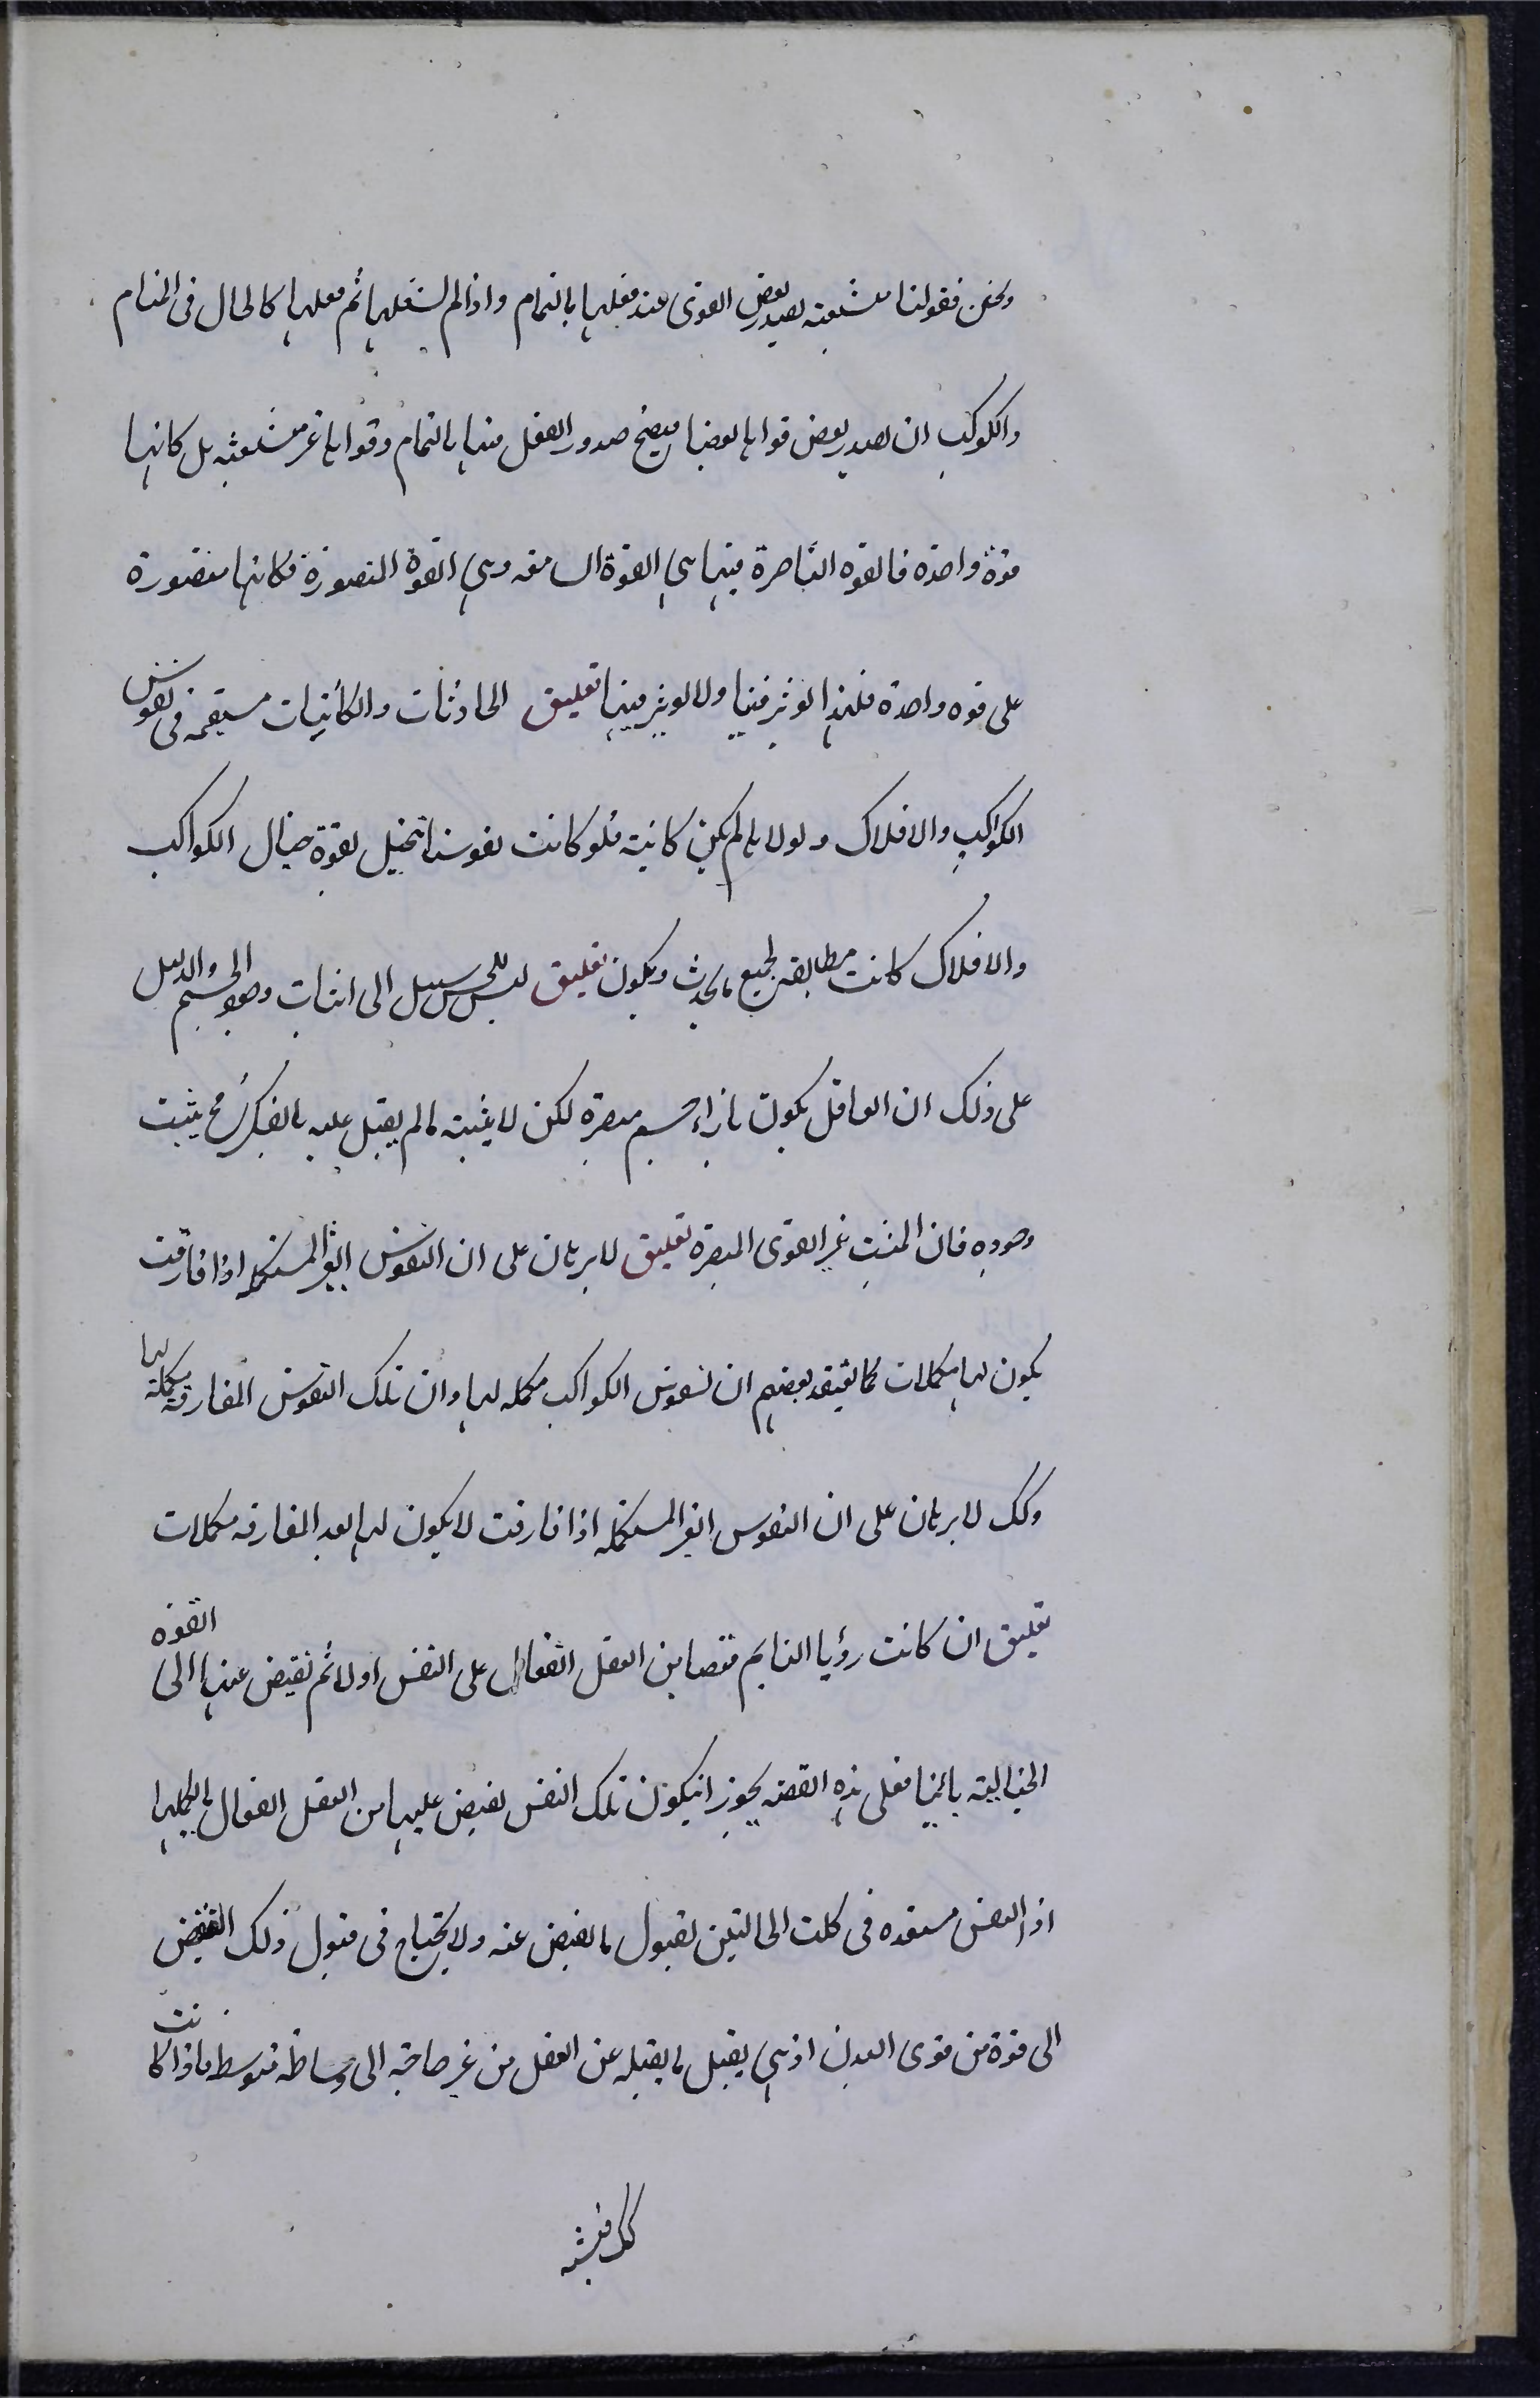 ونحن فقولنا متشعبة يصد بعض القوى عند فعلها بالتمام واذا لم نشغلها ثم فعلها كالحال فى المنام
والكوكب ان يصد بعض قواها بعضا فيصح صدور الفعل منها بالتمام وقواها غير متشعبة بل كانها
قوة واحدة فالقوه الباصرة فيها هي القوة السامعه وهي القوة المتصورة فكانها مقصورة
على قوه واحدة فلهذا يوثر فينا ولا يوثر فيها تعليق الحادثات والكائنات مستقيمه فى نفوس
الكواكب والافلاك ولولاها لم يكن كائنة فلو كانت نفوسنا تتخيل بقوة خيال الكواكب
والافلاك كانت مطابقة لجميع ما يحدث ويكون تعليق ليس للحس سبيل الى اثبات وجود الجسم والدليل
على ذلك ان العاقل يكون بازاء جسم مبصره لكن لا يثبته ما لم يقبل عليه بالفكر ثم ح يثبت
وجوده فان المثبت غير القوى المبصره تعليق لا برهان على ان النفوس الغير المستكمله اذا فارقت
يكون لها مكملات كما يعتقد بعضهم ان نفوس الكواكب مكمله لها وان تلك النفوس المفارقة مكملة لها
وكك لا برهان على ان النفوس الغير المستكمله اذا فارقت لا يكون لها بعد المفارقه مكملات
تعليق ان كانت رؤيا النايم فيضا من العقل الفعال على النفس اولا ثم تفيض عنها الى القوه
الخيالية ثانيا فعلى هذه القضه يجوز ان يكون تلك النفس يفيض عليها من العقل الفعال ما يكملها
اذ النفس مستعده فى كلت الحالتين لقبول ما يفيض عنه ولا يحتاج فى قبول ذلك الفيض
الى قوة من قوى البدن اذ هي يقبل ما يقبله عن العقل من غير حاجة الى وساطة متوسط ما اذا كانت